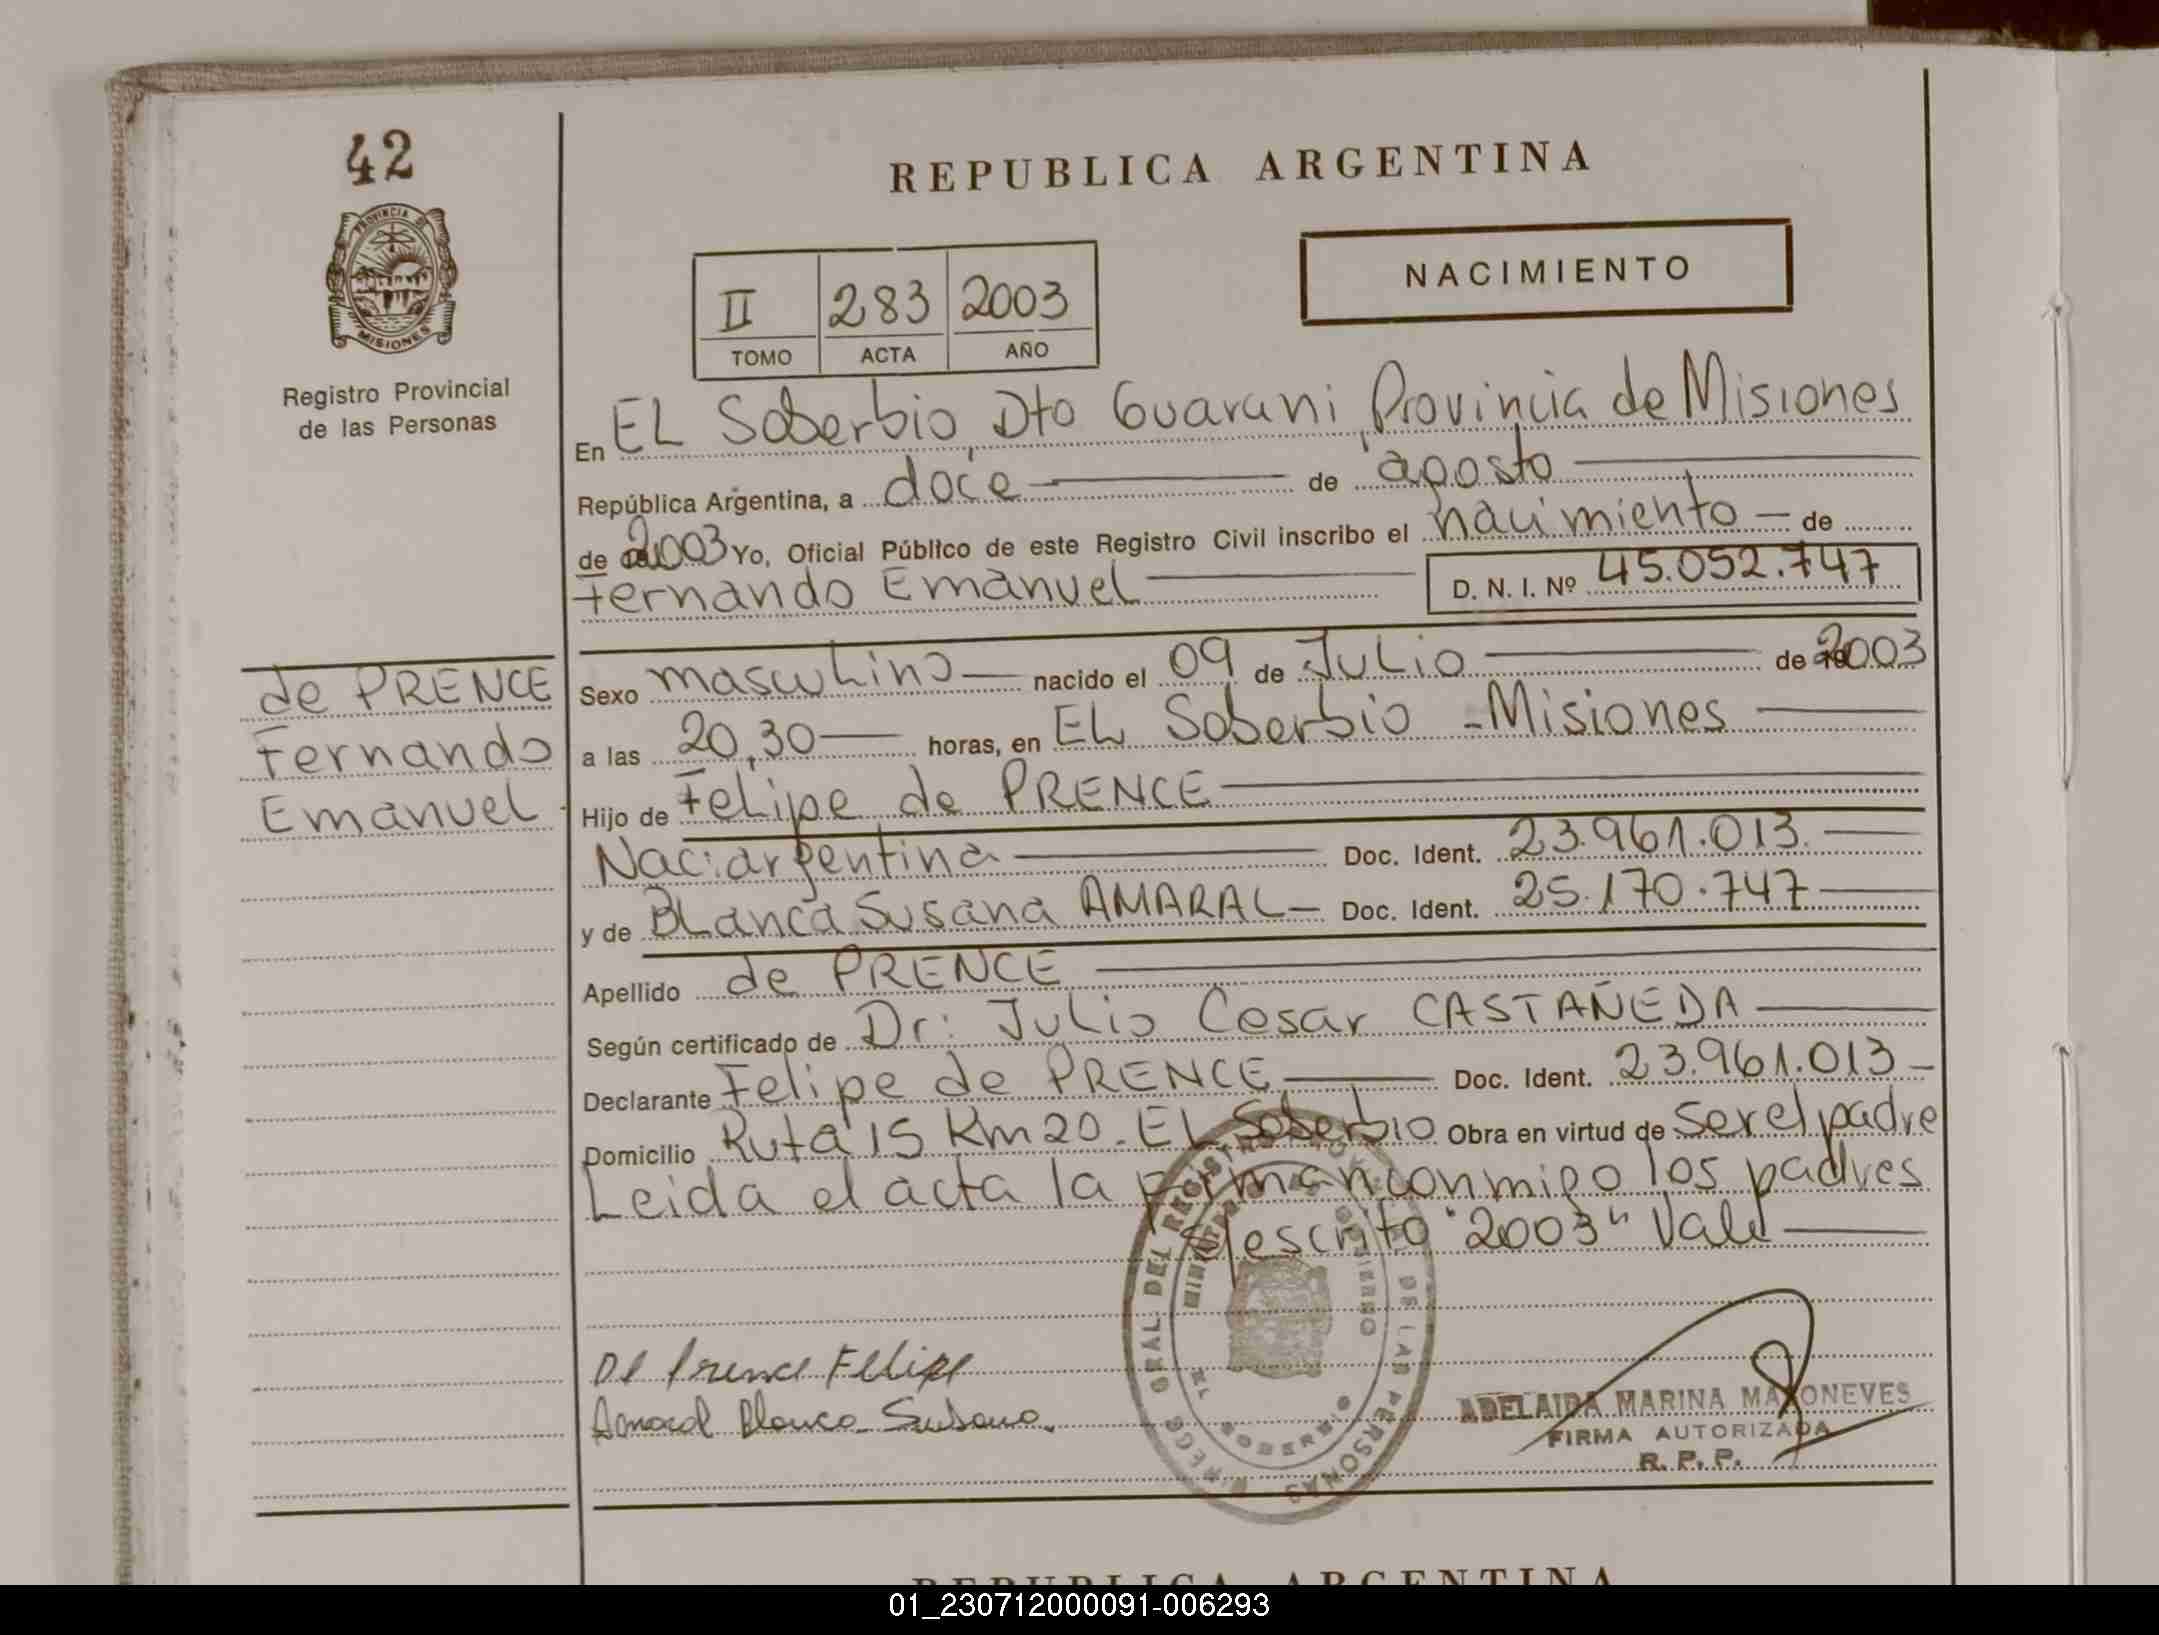 42
PROVINCIA DE
MISIONES
Registro Provincial
de las Personas
REPUBLICA ARGENTINA
NACIMIENTO
II 283 2003
TOMO ACTA AÑO
En EL Soberbio, Dto Guarani, Provincia de Misiones
República Argentina, a doce de agosto
de 2003 Yo, Oficial Público de este Registro Civil inscribo el nacimiento de
Fernando Emanuel D. N. I. Nº 45.052.747
de PRENCE
Fernando
Emanuel
Sexo masculino nacido el 09 de Julio de 2003
a las 20,30 horas, en EL Soberbio - Misiones
Hijo de Felipe de PRENCE
Nac: argentina Doc. Ident. 23.961.013.
y de BLanca Susana AMARAL Doc. Ident. 25.170.747
Apellido de PRENCE
Según certificado de Dr: Julio Cesar CASTAÑEDA
Declarante Felipe de PRENCE Doc. Ident. 23.961.013
Domicilio Ruta 15 Km 20. EL Soberbio Obra en virtud de ser el padre
Leida el acta la firman conmigo los padres
s/escrito "2003" Vale
De Prence Felipe
Amaral Blanca Susana.
GRAL. DEL REGISTRO DE LAS PERSONAS
GOBIERNO
SOBERBIO
ADELAIDA MARINA MAKONEVES
FIRMA AUTORIZADA
R. P. P.
REPUBLICA ARGENTINA
01_230712000091-006293